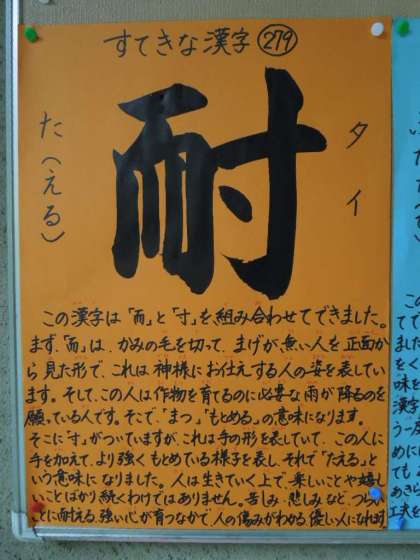 すてきな漢字 279
耐
タイ
た(える)
この漢字は「而」と「寸」を組み合わせてできました。
まず、「而」は、かみの毛を切って、まげが無い人を正面か
ら見た形で、これは神様にお仕えする人の姿を表してい
ます。そして、この人は作物を育てるのに必要な雨が降るのを
願っている人です。そこで、「まつ」「もとめる」の意味になります。
そこに「寸」がついていますが、これは手の形を表していて、この人に
手を加えて、より強くもとめている様子を表し、それで「たえる」と
いう意味になりました。人は生きていく上で、楽しいことや嬉し
いことばかり続くわけではありません。苦しみ、悲しみなど、つらい
ことに耐える、強い心が育つなかで、人の傷みがわかる優しい人になれます